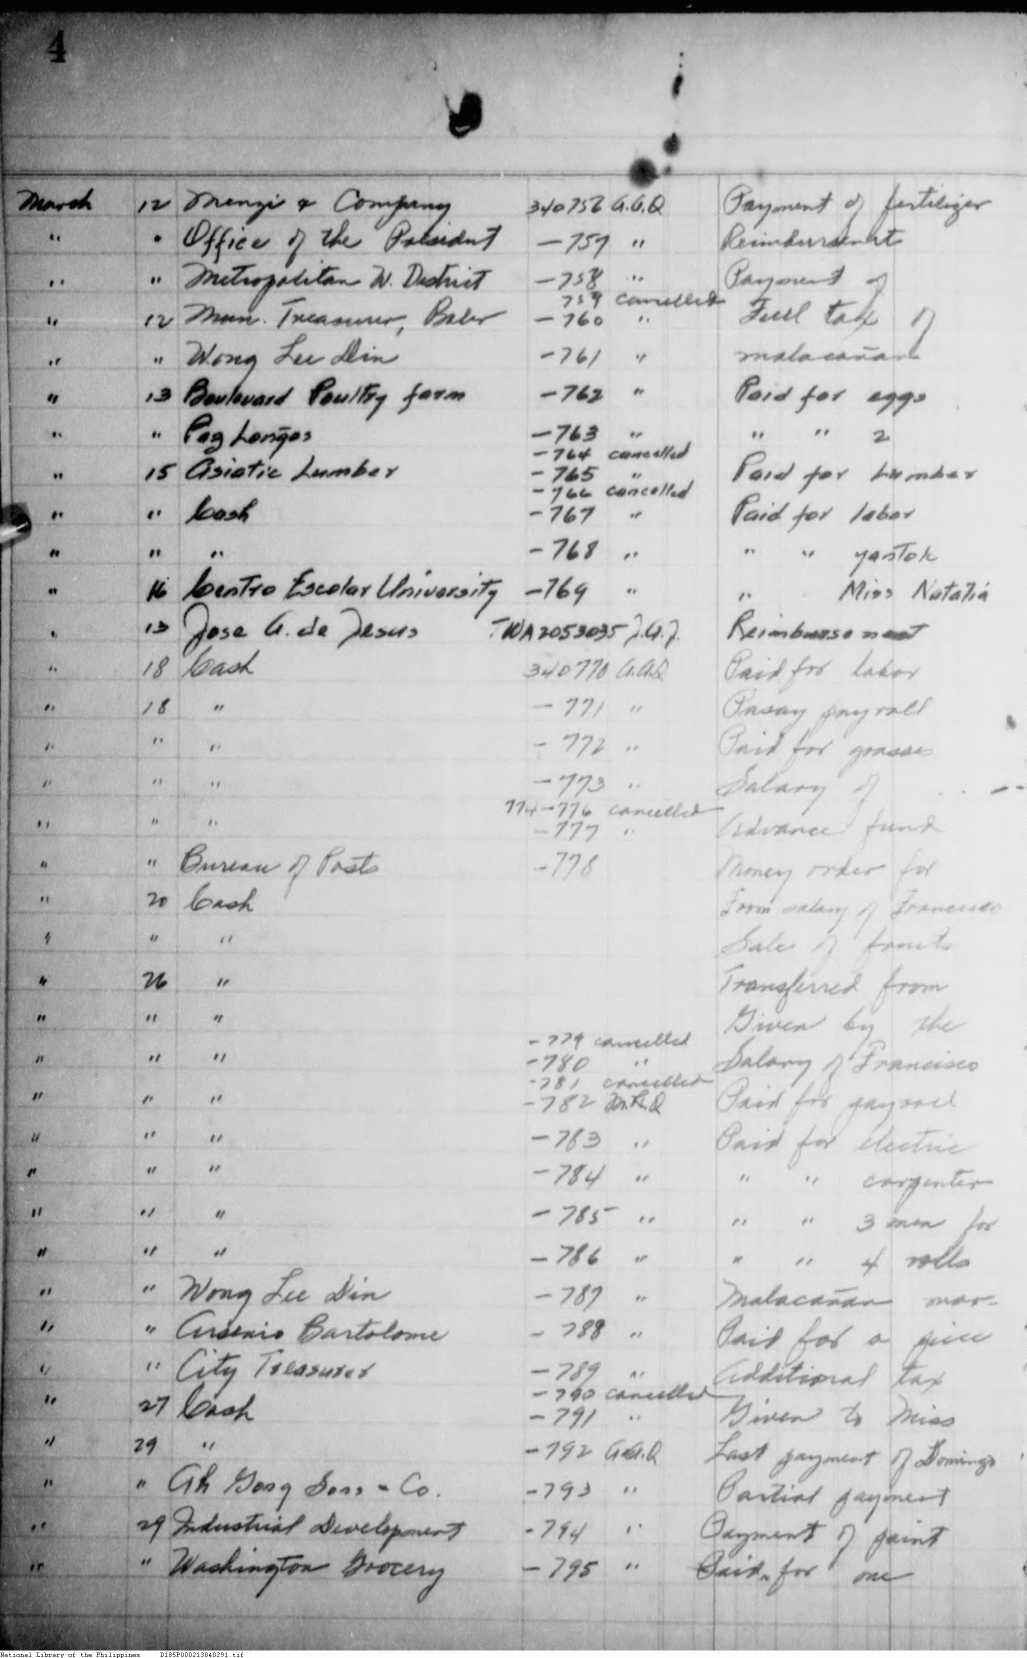 4
March 12 Menzi & Company 340756 A.A.Q Payment of fertilizer
" " Office of the President -757 " Reimbursement
" " Metropolitan W. District -758 " Payment of
759 cancelled
" 12 Mun. Treasurer, Baler -760 " Fuel tax of
" " Wong Lee Din -761 " malacañan
" 13 Boulevard Poultry farm -762 " Paid for eggs
" " Pag -763 " " " 2
-764 cancelled
" 15 Asiatic Lumber -765 " Paid for Lumber
-766 cancelled
" " Cash -767 " Paid for labor
" " " -768 " " " yantok
" 16 Centro Escolar University -769 " " Miss Natalia
" 13 Jose A. de Jesus TWA2053035 J.A.J. Reimbursement
" 18 Cash 340770 A.A.Q Paid for labor
" 18 " -771 " Pasay payroll
" " " -772 " Paid for grasses
" " " -773 " Salary of
774-776 cancelled
" " " -777 " Advance fund
" " Bureau of Posts -778 Money order for
" 20 Cash From salary of Francisco
" " " Sale of fruits
" 26 " Transferred from
" " " Given by the
-779 cancelled
" " " -780 " Salary of Francisco
-781 cancelled
" " " -782 Paid for payroll
" " " -783 " Paid for electric
" " " -784 " " " carpenter
" " " -785 " " " 3 men for
" " " -786 " " " 4 rolls
" " Wong Lee Din -787 " Malacañan mar-
" " Arsenio Bartolome -788 " Paid for a piece
" " City Treasurer -789 " Additional tax
-790 cancelled
" 27 Cash -791 " Given to Miss
" 29 " -792 A.A.Q Last payment of Domingo
" " Ah Gong Sons & Co. -793 " Partial payment
" 29 Industrial Development -794 " Payment of paint
" " Washington Grocery -795 " Paid for one
National Library of the Philippines D185P000213040291.tif